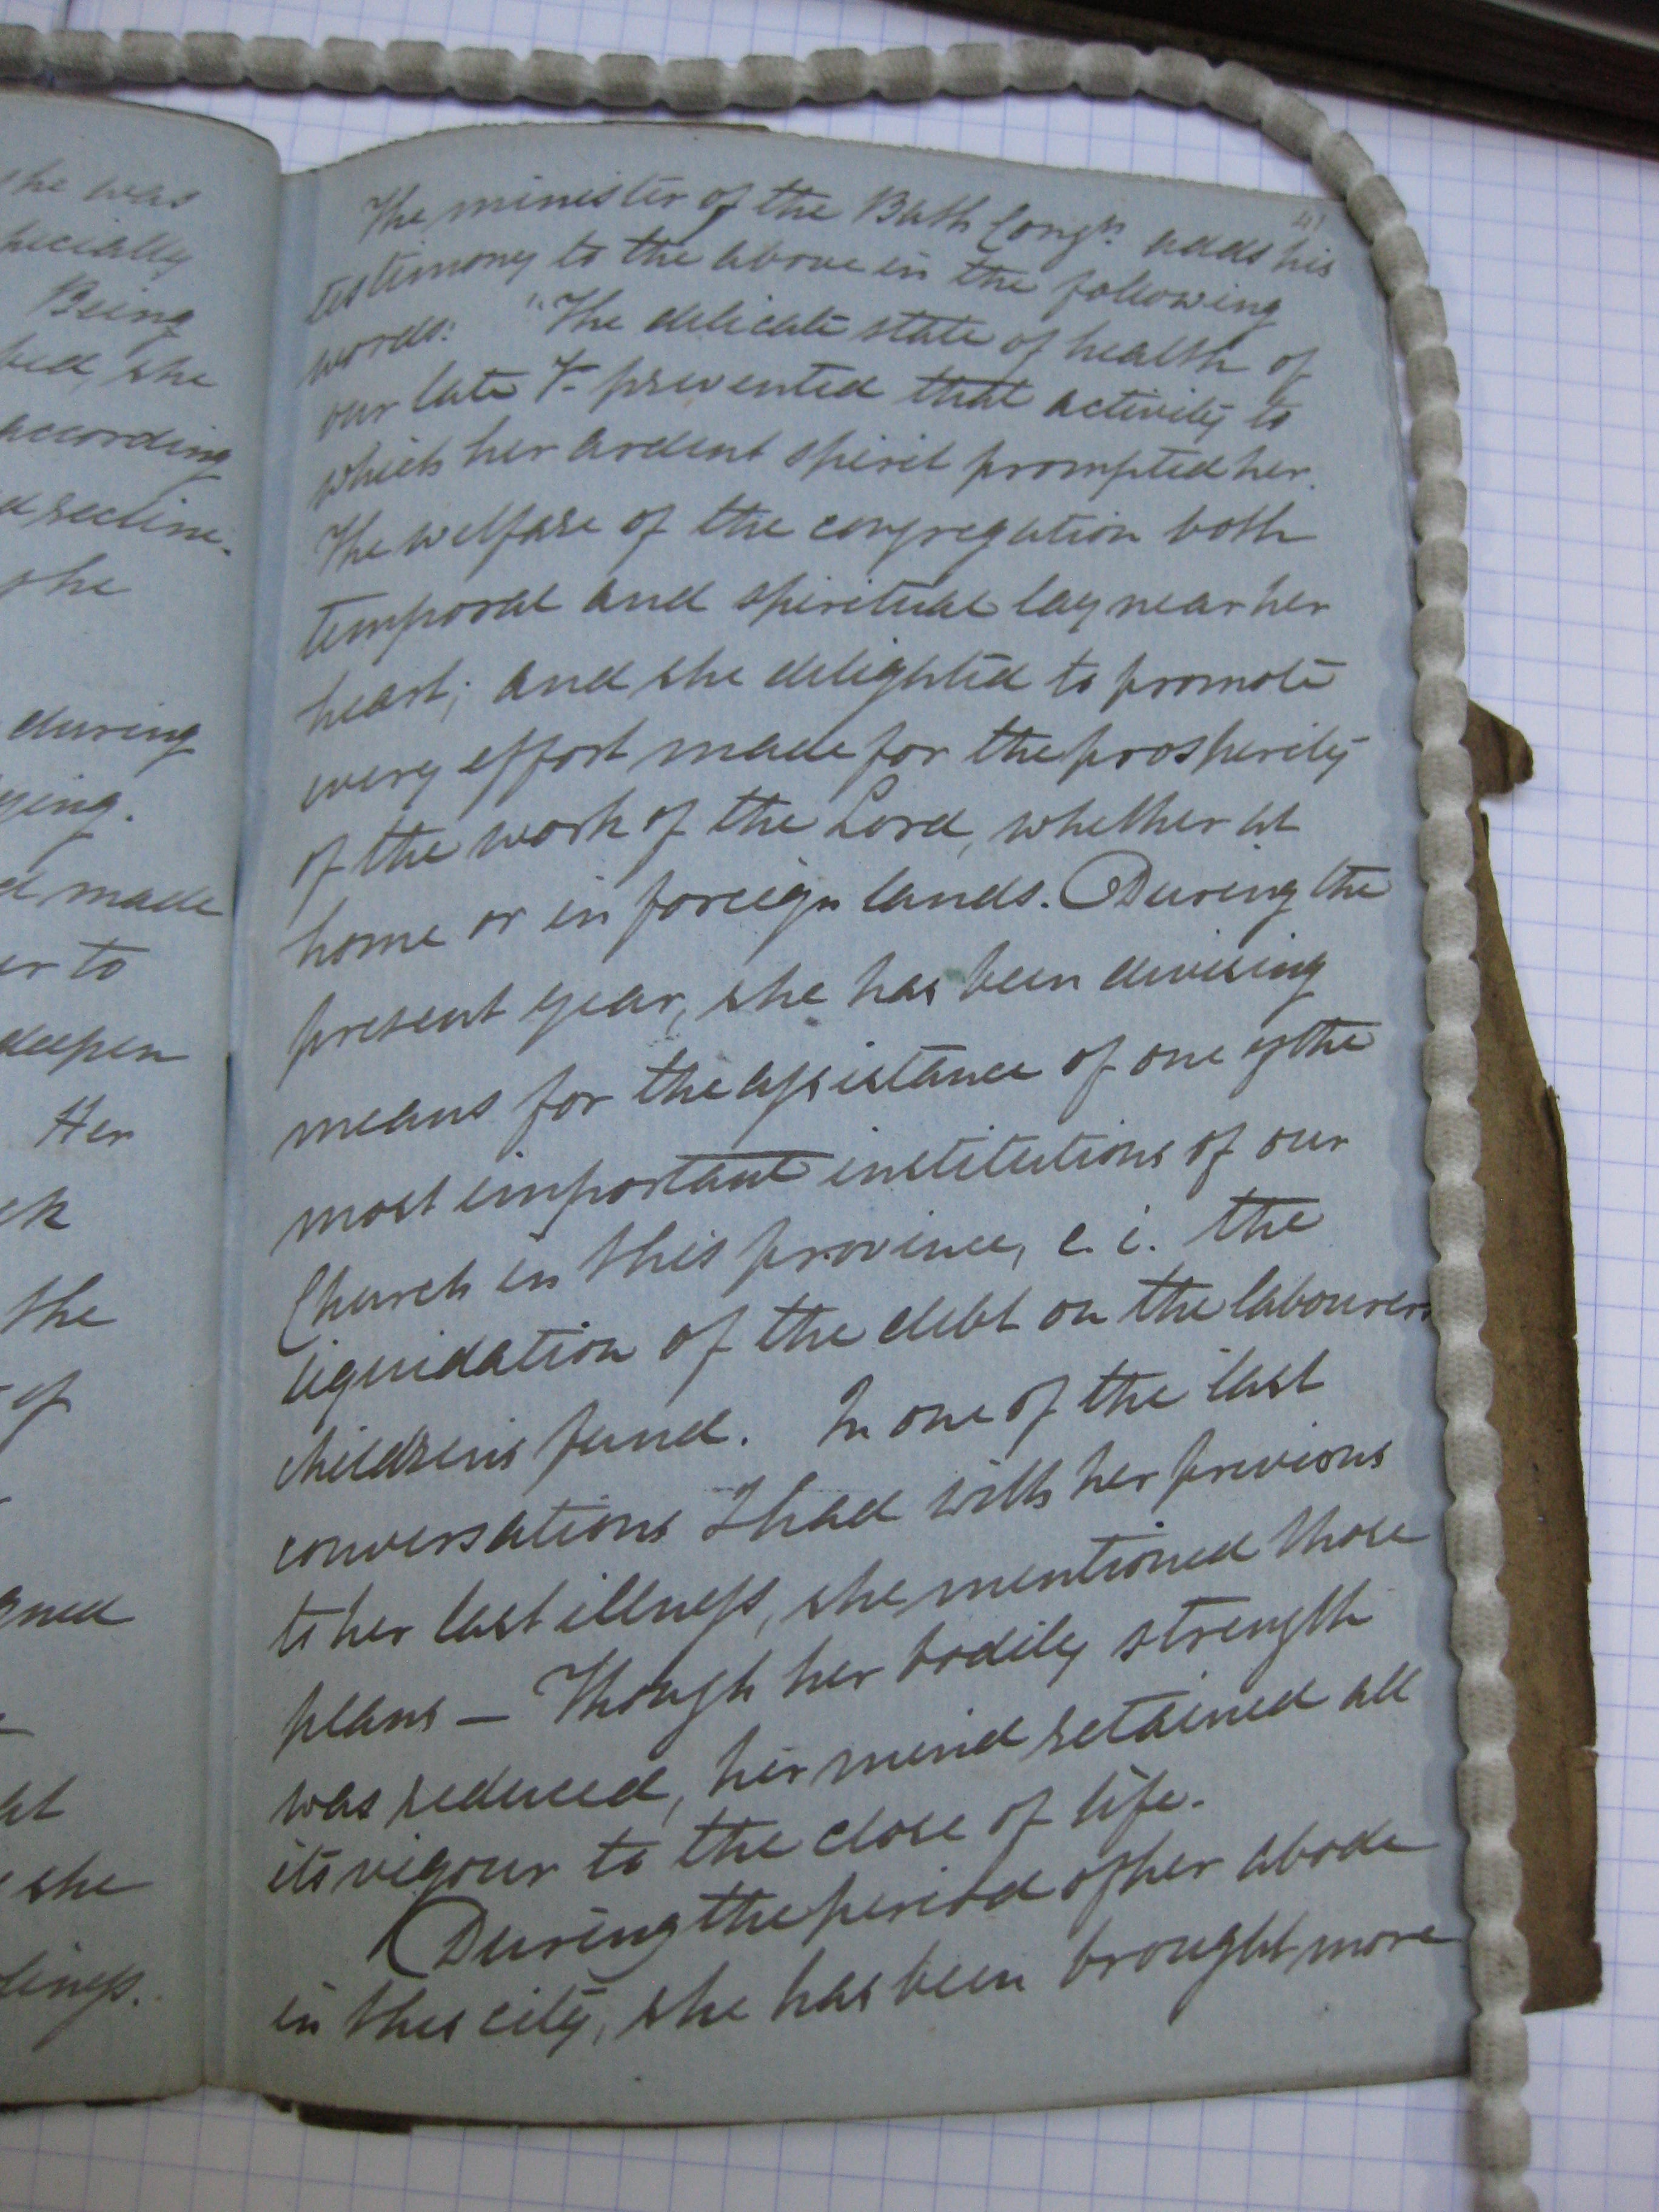 she was
pecially
Being
bed, she
according
d recline.
she
during
ying.
d made
er to
deepen
Her
ck
the
of
gned
at
she
lings.
41
The minister of the Bath Congn. adds his
testimony to the above in the following
words: "The delicate state of health of
our late Sr. prevented that activity to
which her ardent spirit prompted her.
The welfare of the congregation both
temporal and spiritual lay near her
heart; and she delighted to promote
every effort made for the prosperity
of the work of the Lord, whether at
home or in foreign lands. During the
present year, she has been devising
means for the assistance of one of the
most important institutions of our
Church in this province, e. i. the
liquidation of the debt on the labourers
children's fund. In one of the last
conversations I had with her previous
to her last illness, she mentioned those
plans — Though her bodily strength
was reduced, her mind retained all
its vigour to the close of life.
During the period of her abode
in this city, she has been brought more